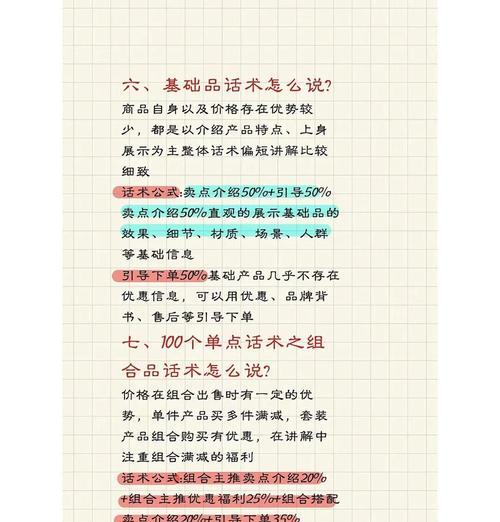 六、基础品话术怎么说?
商品自身以及价格存在优势较
少，都是以介绍产品特点、上身
展示为主整体话术偏短讲解比较
细致
话术公式:卖点介绍50%+引导50%
卖点介绍50%直观的展示基础品的
效果、细节、材质、场景、人群
等基础信息
引导下单50%基础产品几乎不存在
优惠信息，可以用优惠、品牌背
书、售后等引导下单
七、100个单点话术之组
合品话术怎么说?
价格在组合出售时有一定的优
势，单件产品买多件满减，套装
产品组合购买有优惠，在讲解中
注重组合满减的福利
话术公式:组合主推卖点介绍20%
+组合主推优惠福利25%+组合搭配
卖点介绍20%+引导下单35%